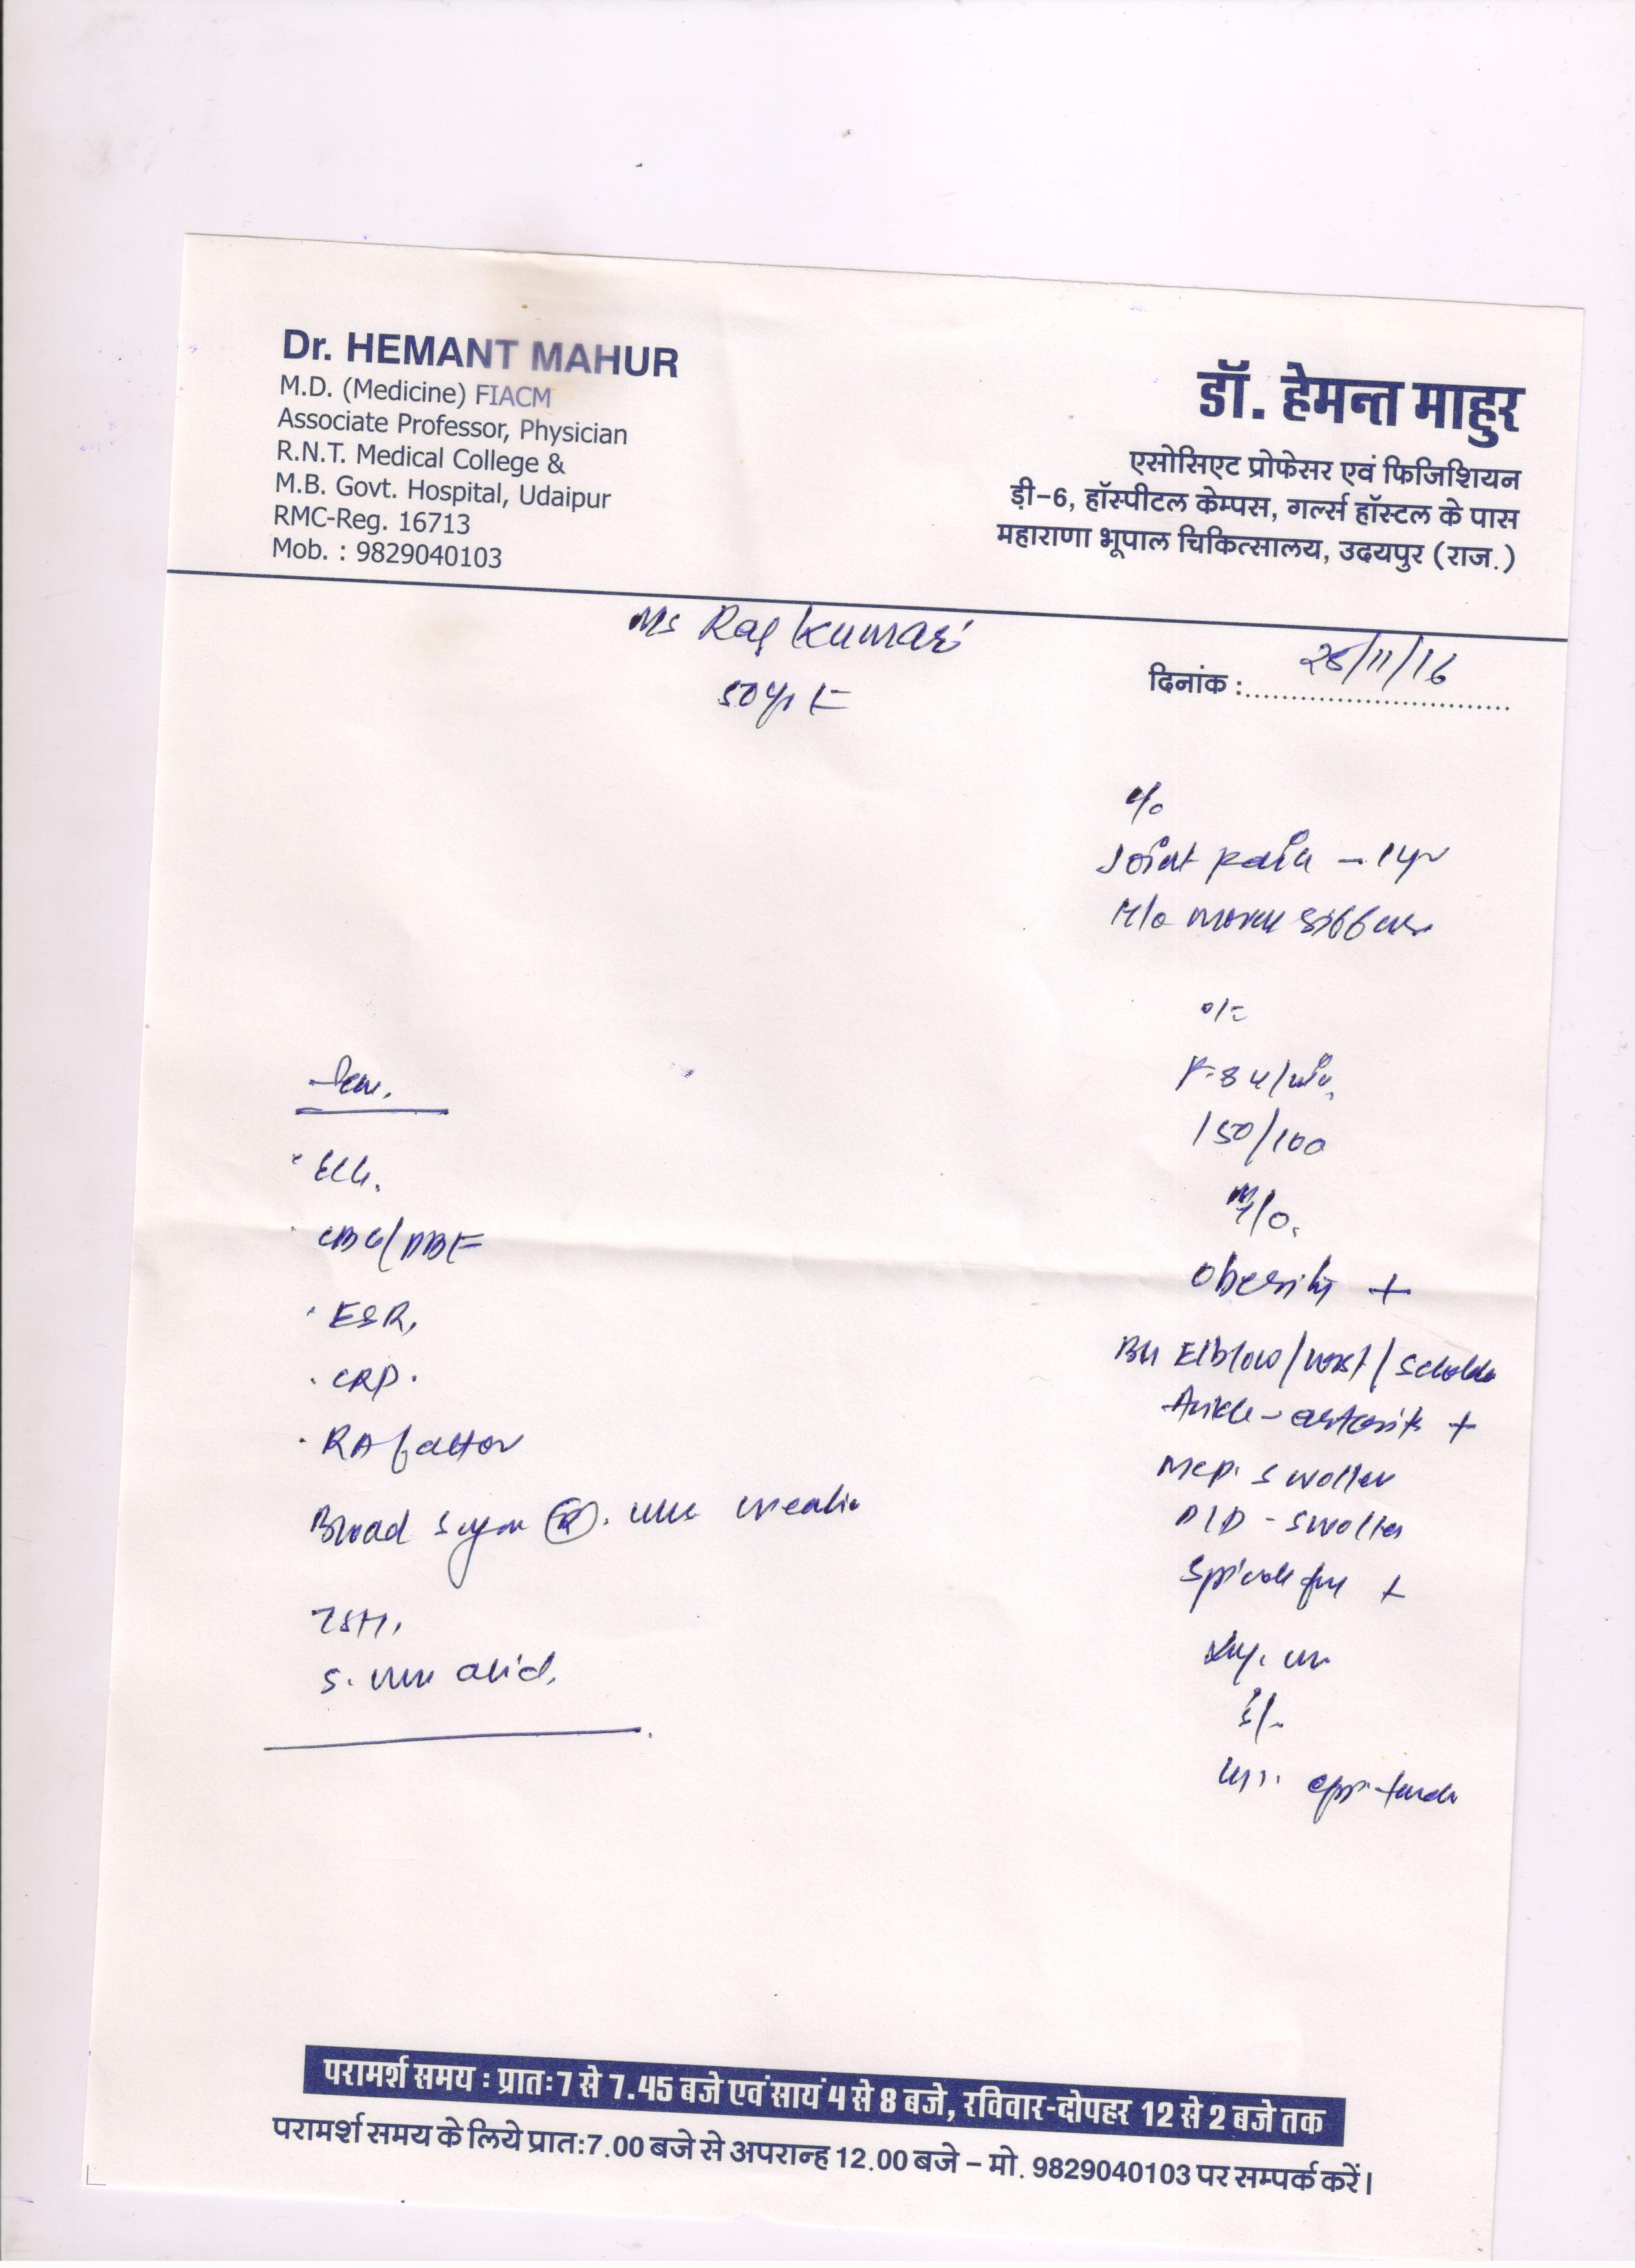 Dr. HEMANT MAHUR
M.D. (Medicine) FIACM
Associate Professor, Physician
R.N.T. Medical College &
M.B. Govt. Hospital, Udaipur
RMC-Reg. 16713
Mob. : 9829040103
डॉ. हेमन्त माहुर
एसोसिएट प्रोफेसर एवं फिजिशियन
ड़ी-6, हॉस्पीटल केम्पस, गर्ल्स हॉस्टल के पास
महाराणा भूपाल चिकित्सालय, उदयपुर (राज.)
Ms Raj kumari
50 yr F
दिनांक :
/11/16
c/o
Joint pain - 1 yr
H/o
O/E
P-84/min
150/100
Obesity +
Elblow/
Ankle - +
MCP. swollen
PIP - swollen
+
ECG.
CBC/PBF
ESR,
. CRP.
. RA factor
Blood sugar (R).
TSH,
S. acid.
परामर्श समय : प्रातः 7 से 7.45 बजे एवं सायं 4 से 8 बजे, रविवार-दोपहर 12 से 2 बजे तक
परामर्श समय के लिये प्रात:7.00 बजे से अपरान्ह 12.00 बजे – मो. 9829040103 पर सम्पर्क करें।